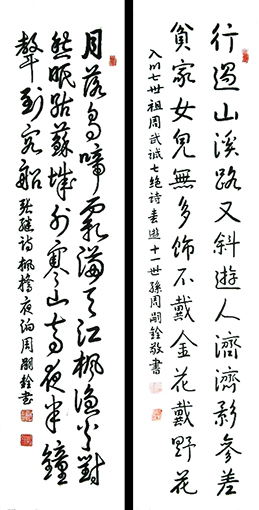 行過山溪路又斜遊人濟濟影參差
貧家女兒無多飾不戴金花戴野花
入川七世祖周武誠七绝诗春遊十一世孫周嗣銓敬書
月落烏啼霜滿天江楓漁火對
愁眠姑蘇城外寒山寺夜半鐘
聲到客船 张继诗楓橋夜泊周嗣銓書